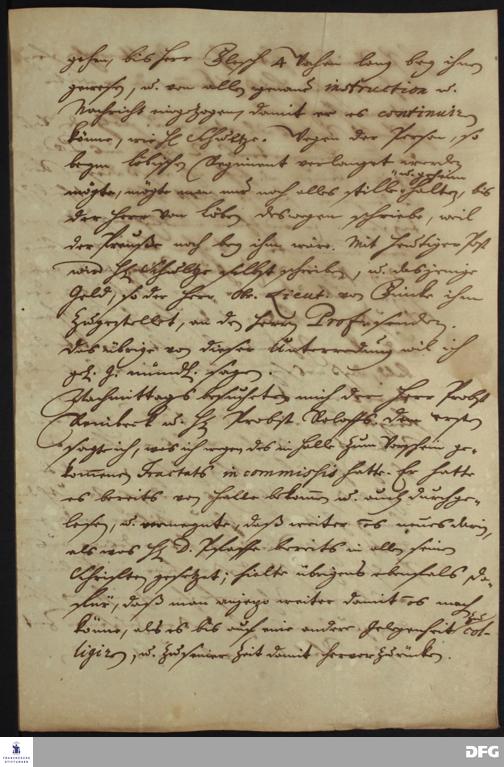 gehen, bis Herr Blesch 4 Wochen lang bey ihm
gewesen, u. von allen genaue instruction u.
Nachricht eingezogen, damit er es continuiren
könne, wie H. Schultze. Wegen der Person, so
beym Löbischen Regiment verlanget werden
möchte, möchte man nur noch alles stille u. geheim halten, bis
der Herr von Löben deswegen schriebe, weil
der Preuße noch bey ihm wäre. Mit heutiger Post
wird H. Schultze selbst schreiben, u. dasjenige
Geld, so der Herr Ob. Lieut. von ihm
zugestellet, an den Herrn Prof. übersenden.
Das übrige von dieser Unterredung will ich
g. G. mündl. sagen.
Nachmittags besuchten mich der Herr Probst
Reinbeck u. H. Probst Roloff. Dem ersten
sagte ich, was ich wegen des in Halle zum Vorschein ge-
kommenen Tractats in commissis hatte. Er hatte
es bereits von Halle bekommen u. auch durchge-
lesen, u. vermeynte, daß weiter nichts neues darin,
als was H. D. Pfaffe bereits in allen seinen
Schriften gesetzet; hielte übrigens ebenfals da-
für, daß man anjezo weiter damit nichts machen
könne, als es bis auf eine andere Gelegenheit zu col-
ligiren, u. zu seiner Zeit damit hervorzurücken.
FRANCKESCHE
STIFTUNGEN
DFG